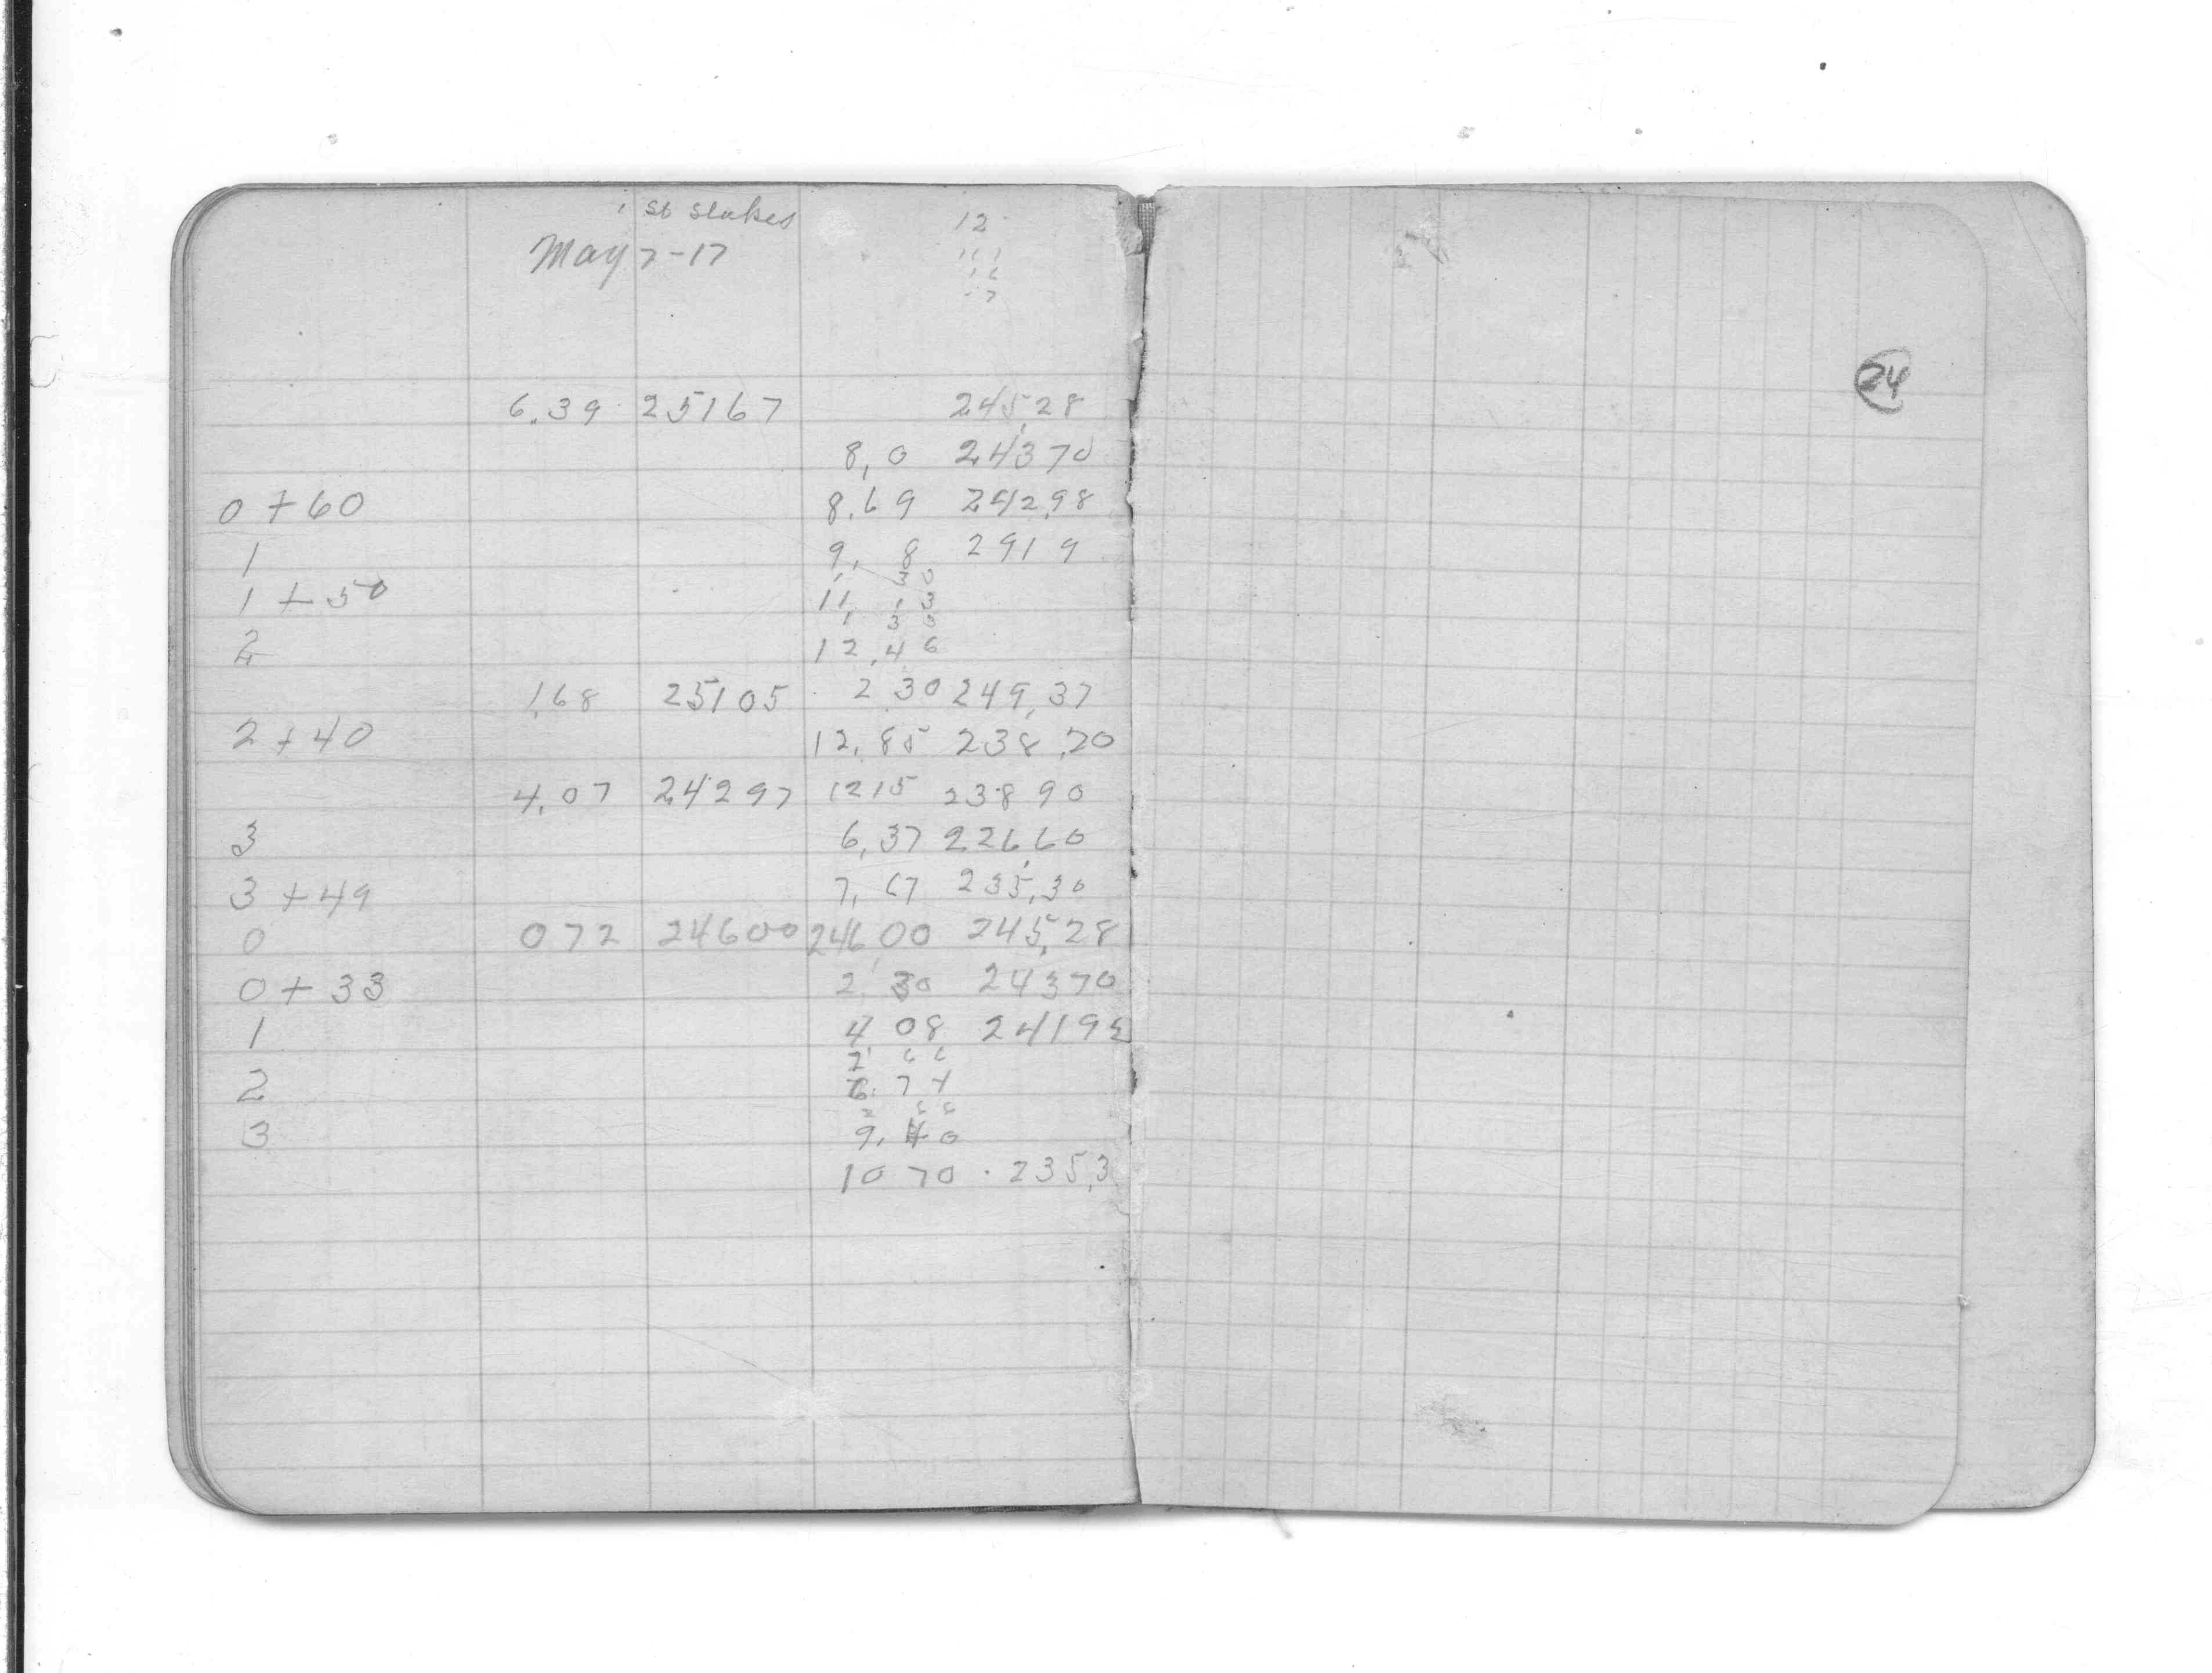 st stakes 12
May 7-17
24
6.39 25167 245,28
8,0 24370
0+60 8.69 242,98
1 9, 8 2919
30
1+50 11, 13
1, 33
2 12,46
1,68 25105 2 30 249,37
2+40 12,85 238,20
4,07 24297 1215 23890
3 6,37
3+49 7,67 235,30
0 072 24600 246,00 245,28
0+33 2 30 24370
1 4 08 2419
2 66
2 6. 74
2 66
3 9, 40
10 70 . 235,3